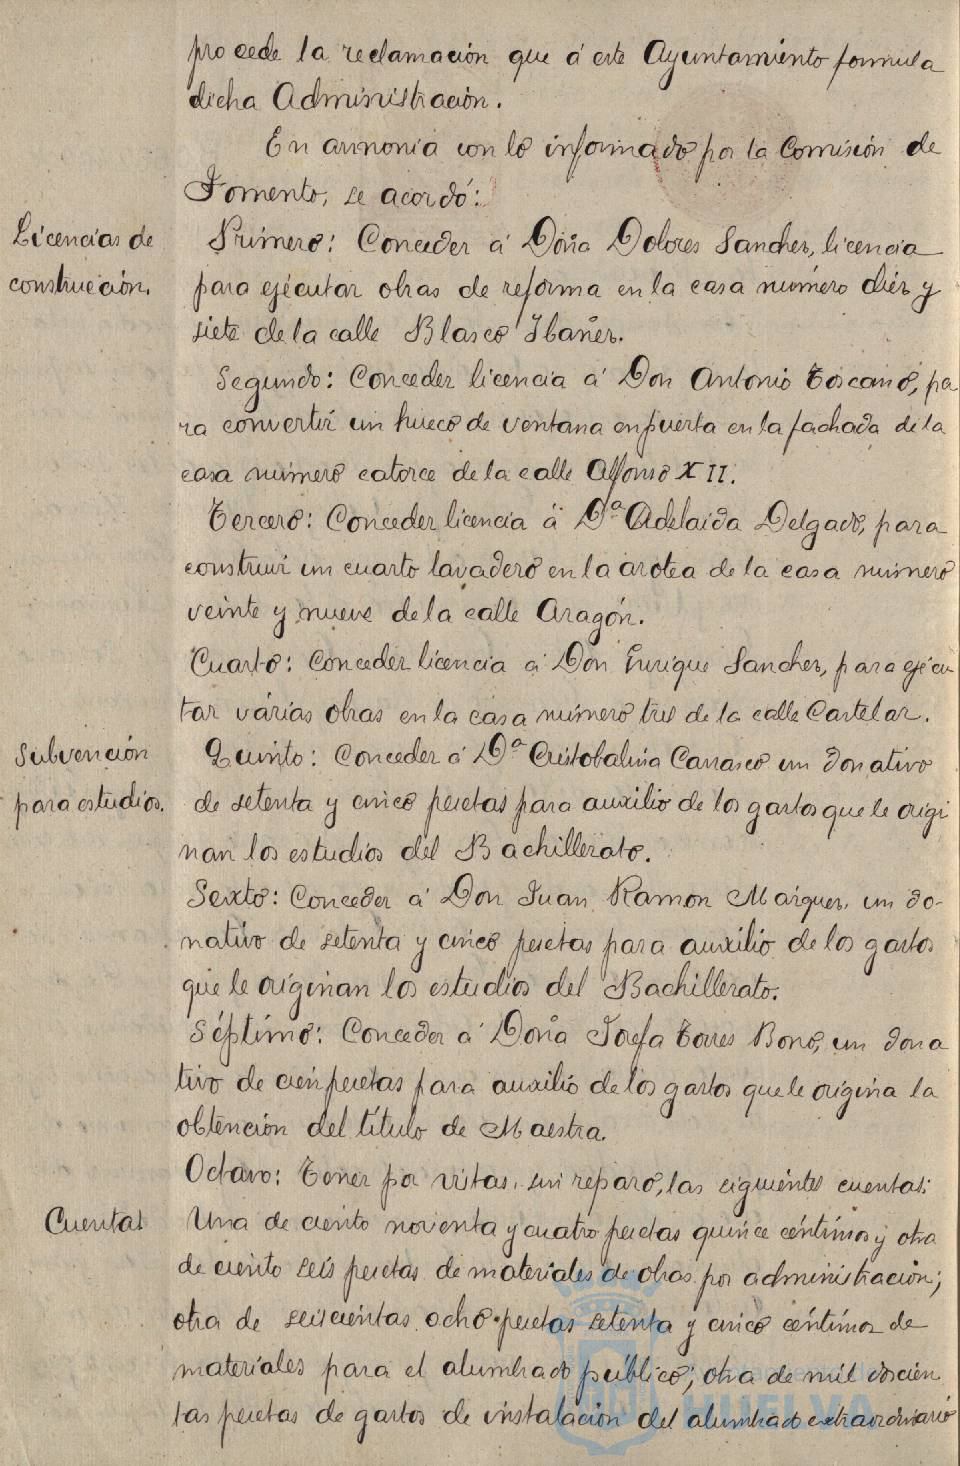 procede la reclamación que á este Ayuntamiento formula
dicha Administración.
En armonia con lo informado por la Comisión de
Fomento, se acordó:
Licencias de
construcción.
Primero: Conceder á Doña Dolores Sanchez, licencia
para ejecutar obras de reforma en la casa número diéz y
siete de la calle Blasco Ibañez.
Segundo: Conceder licencia á Don Antonio Toscano, pa
ra convertir un hueco de ventana en puerta en la fachada de la
casa número catorce de la calle Alfonso XII.
Tercero: Conceder licencia á Dª Adelaida Delgado, para
construir un cuarto lavadero en la azotea de la casa número
veinte y nueve de la calle Aragón.
Cuarto: Conceder licencia á Don Enrique Sanchez, para ejecu-
tar várias obras en la casa número tres de la calle Castelar.
Subvención
para estudios.
Quinto: Conceder á Dª Cristobalina Carrasco un donativo
de setenta y cinco pesetas para auxilio de los gastos que le origi
nan los estudios del Bachillerato.
Sexto: Conceder á Don Juan Ramon Márquez, un do-
nativo de setenta y cinco pesetas para auxilio de los gastos
que le originan los estudios del Bachillerato.
Séptimo: Conceder á Doña Josefa Torres Bono, un dona
tivo de cien pesetas para auxilio de los gastos que le origina la
obtención del título de Maestra.
Octavo: Tener por vistas, sin reparo, las siguientes cuentas:
Cuentas
Una de ciento noventa y cuatro pesetas quince céntimos y otra
de ciento seis pesetas de materiales de obras por administración;
otra de seiscientas ocho pesetas setenta y cinco céntimos de
materiales para el alumbrado público; otra de mil doscien
tas pesetas de gastos de instalación del alumbrado extraordinario
HUELVA